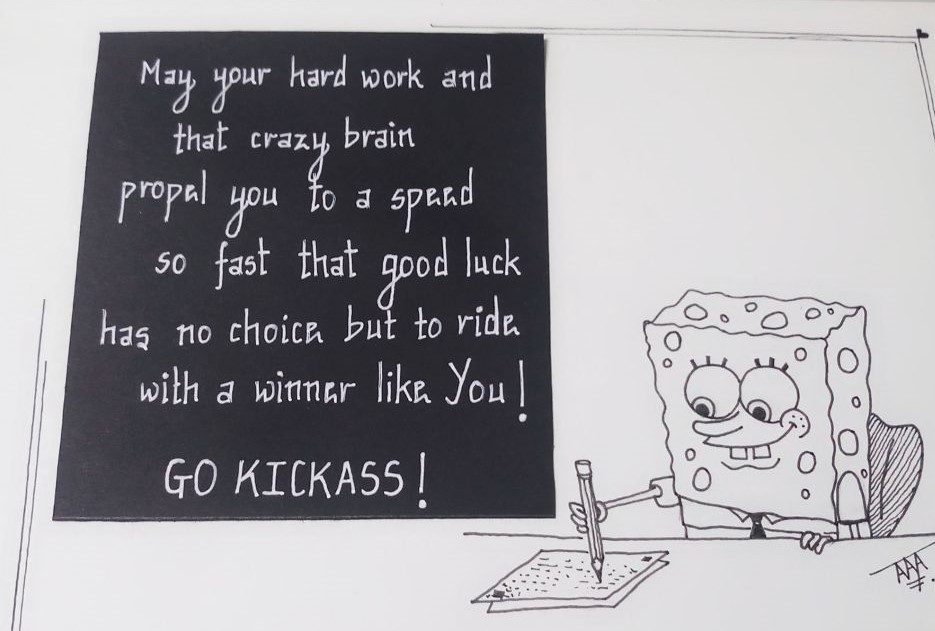 May your hard work and
that crazy brain
propel you to a speed
so fast that good luck
has no choice but to ride
with a winner like You!
GO KICKASS!
AAA